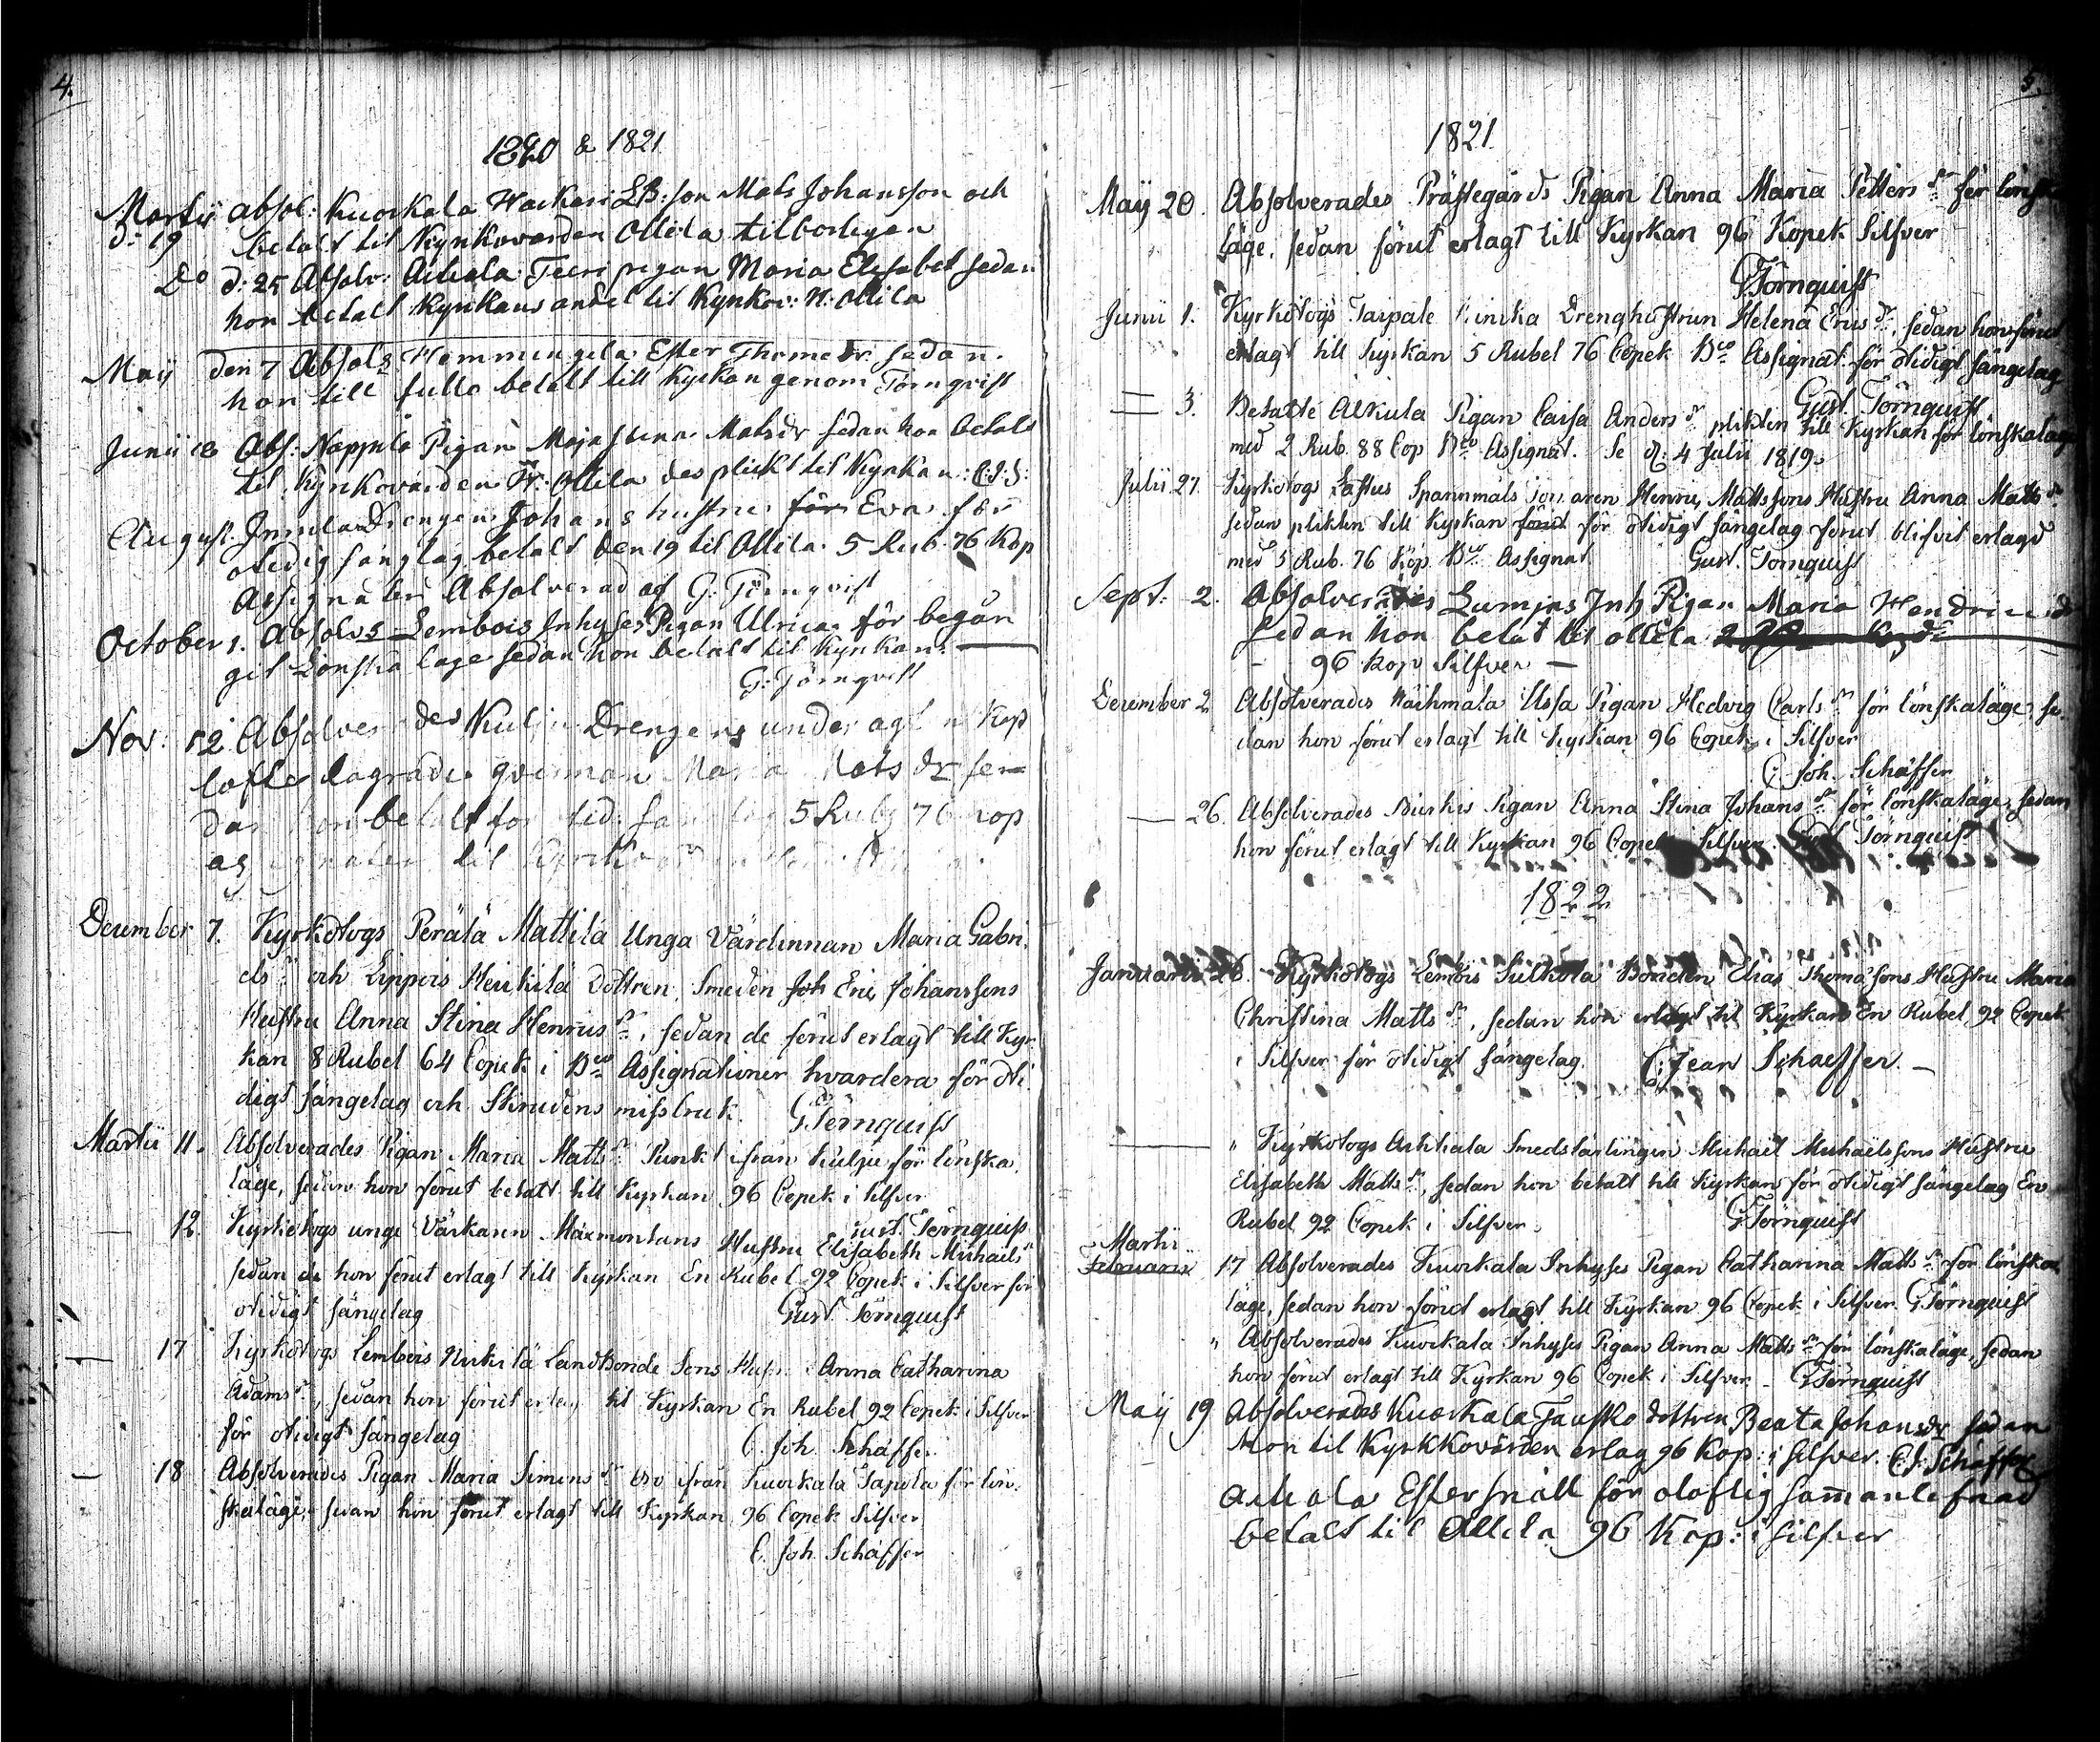 4.
1820 & 1821
Martii absol: Kuorkala Hackari LB: son Mats Johansson och
d: 19 betalt til Kyrkovärden Ollila tilbörligen
Do d: 25 Absolv: Ackala Teeri pigan Maria Elisabet sedan
hon betalt Kyrkans andel til Kyrkov: H: Ollila
Maij den 7 Absolv Hemmingila Ester Thomedr sedan
hon till fullo betalt till Kyrkan genom Törnqvist
Junii 18 Abs: Nappila Pigan Maja Stina Matsdr sedan hon betalt
til Kyrkovärden H: Ollila des plickt til Kyrkan: C:J:S:
August. Drengen Johans hustru för Eva för
otidig sänglag betalt den 19 til Ollila 5 Rub. 76 Kop
Assignater Absolverad af G. Törnqvist
October 1. Absolvs Lembois Inhyses Pigan Ulrica för begån
git Lönska läge sedan hon betalt til Kyrkan.
G: Törnqvist
Nov. 12 Absolverades Drengens under ägt
lofte lägrade qvinnan Maria Mats dr se
dan hon betalt för 5 Rub 76 kop
til
December 7. Kyrkotogs Perälä Mattila Unga Värdinnan Maria Gabri,
els dr och Lippois Heikilä Dottren, Smeden Joh Eric Johanssons
Hustru Anna Stina Henrics dr, sedan de förut erlagt till Kyr
kan 8 Rubel 64 Copek i Bco Assignationer hvardera för oti
digt sängelag och Skrudens missbruk. G Törnquist
Martii 11. Absolverades Pigan Maria Matts dr Punkt ifrån Kulju för lönska,
läge, sedan hon förut betalt till Kyrkan 96 Copek i Silfver
Gust. Törnquist
12. Kyrkotogs unge Värkarin Maxmontans Hustru Elisabeth Michaels dr
sedan de hon förut erlagt till Kyrkan En Rubel 92 Copek i Silfver för
otidigt sängelag Gust. Törnquist
— 17 Kyrkotogs Lembois Heikilä Landbonde Sons Hustru Anna Catharina
Adams dr, sedan hon förut erlagt til Kyrkan En Rubel 92 Copek i Silfver
för otidigt sängelag C. Joh. Schäffer
— 18 Absolverades Pigan Maria Simons dr ifrån Kuorkala Papola för lön,
skaläge, sedan hon förut erlagt till Kyrkan 96 Copek Silfver
C. Joh. Schäffer
5.
1821
Maij 20. Absolverades Prästegårds Pigan Anna Maria Petters dr för lönska
läge, sedan förut erlagt till Kyrkan 96 Kopek Silfver
G Törnquist
Junii 1. Kyrkotogs Taipale Drenghustrun Helena Erics dr, sedan hon förut
erlagt till Kyrkan 5 Rubel 76 Copek Bco Assignat. för otidigt sängelag
Gust. Törnquist
— 3. Betalte Alkula Pigan Caisa Anders dr plikten till Kyrkan för lönskaläge
med 2 Rub. 88 Cop Bco Assignat. Se d: 4 Julii 1819.
Julii 27. Kyrkotogs Lastus Spannmåls Henric Mattssons Hustru Anna Matts dr
sedan plikten till Kyrkan förut för otidigt sängelag förut blifvit erlagd
med 5 Rub. 76 Kop. Bco Assignat Gust. Törnquist
Sept: 2. Absolverades Lumjas Inh Pigan Maria Hendricsdr
sedan hon betalt til ollila 2
96 kop Silfver —
December 2 Absolverades Waihmala Ussa Pigan Hedvig Carls dr för lönskaläge, se,
dan hon förut erlagt till Kyrkan 96 Copek i Silfver
C. Joh. Schäffer
— 26. Absolverades Pigan Anna Stina Johans dr för lönskaläge, sedan
hon förut erlagt till Kyrkan 96 Copek Silfver. Törnquist
1822
Januarii 26. Kyrkotogs Lembois Sulkola Bonden Elias Thomassons Hustru Maria
Christina Matts dr, sedan hon erlagt til Kyrkan En Rubel 92 Copek
i Silfver för otidigt sängelag. C: Jean Schaeffer. —
— „ Kyrkotogs Ackkala Smedslärlingen Michaël Michaelssons Hustru
Elisabeth Matts dr, sedan hon betalt till Kyrkan för otidigt sängelag En
Rubel 92 Copek i Silfver. G Törnquist
Martii
Februarii 17 Absolverades Kuorkala Inhyses Pigan Catharina Matts dr för lönska
läge, sedan hon förut erlagt till Kyrkan 96 Copek i Silfver. G Törnquist
„ Absolverades Kuorkala Inhyses Pigan Anna Matts dr för lönskaläge, sedan
hon förut erlagt till Kyrkan 96 Copek i Silfver. G Törnquist
Maij 19 Absolverades Kuorkala Jaussko dottren Beata Johansdr sedan
Hon til Kyrkkovärden erlag 96 Kop: i silfver. C J: Schäffer
Ackala Ester snäll för oloflig sammanlefnad
betalt til Ollila 96 Kop: i silfver